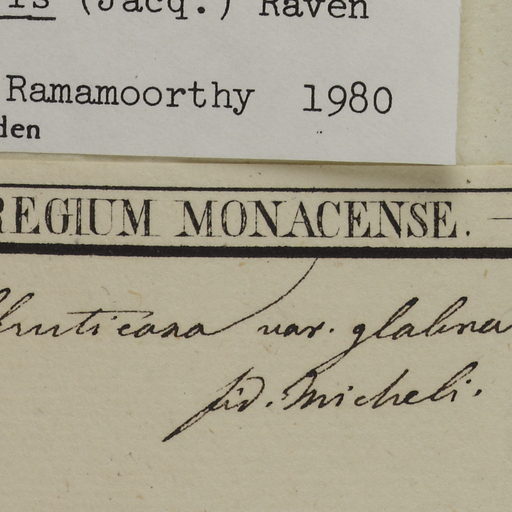 is (Jacq.) Raven
Ramamoorthy 1980
den
REGIUM MONACENSE.
fruticosa var. glabra
fid. Micheli.